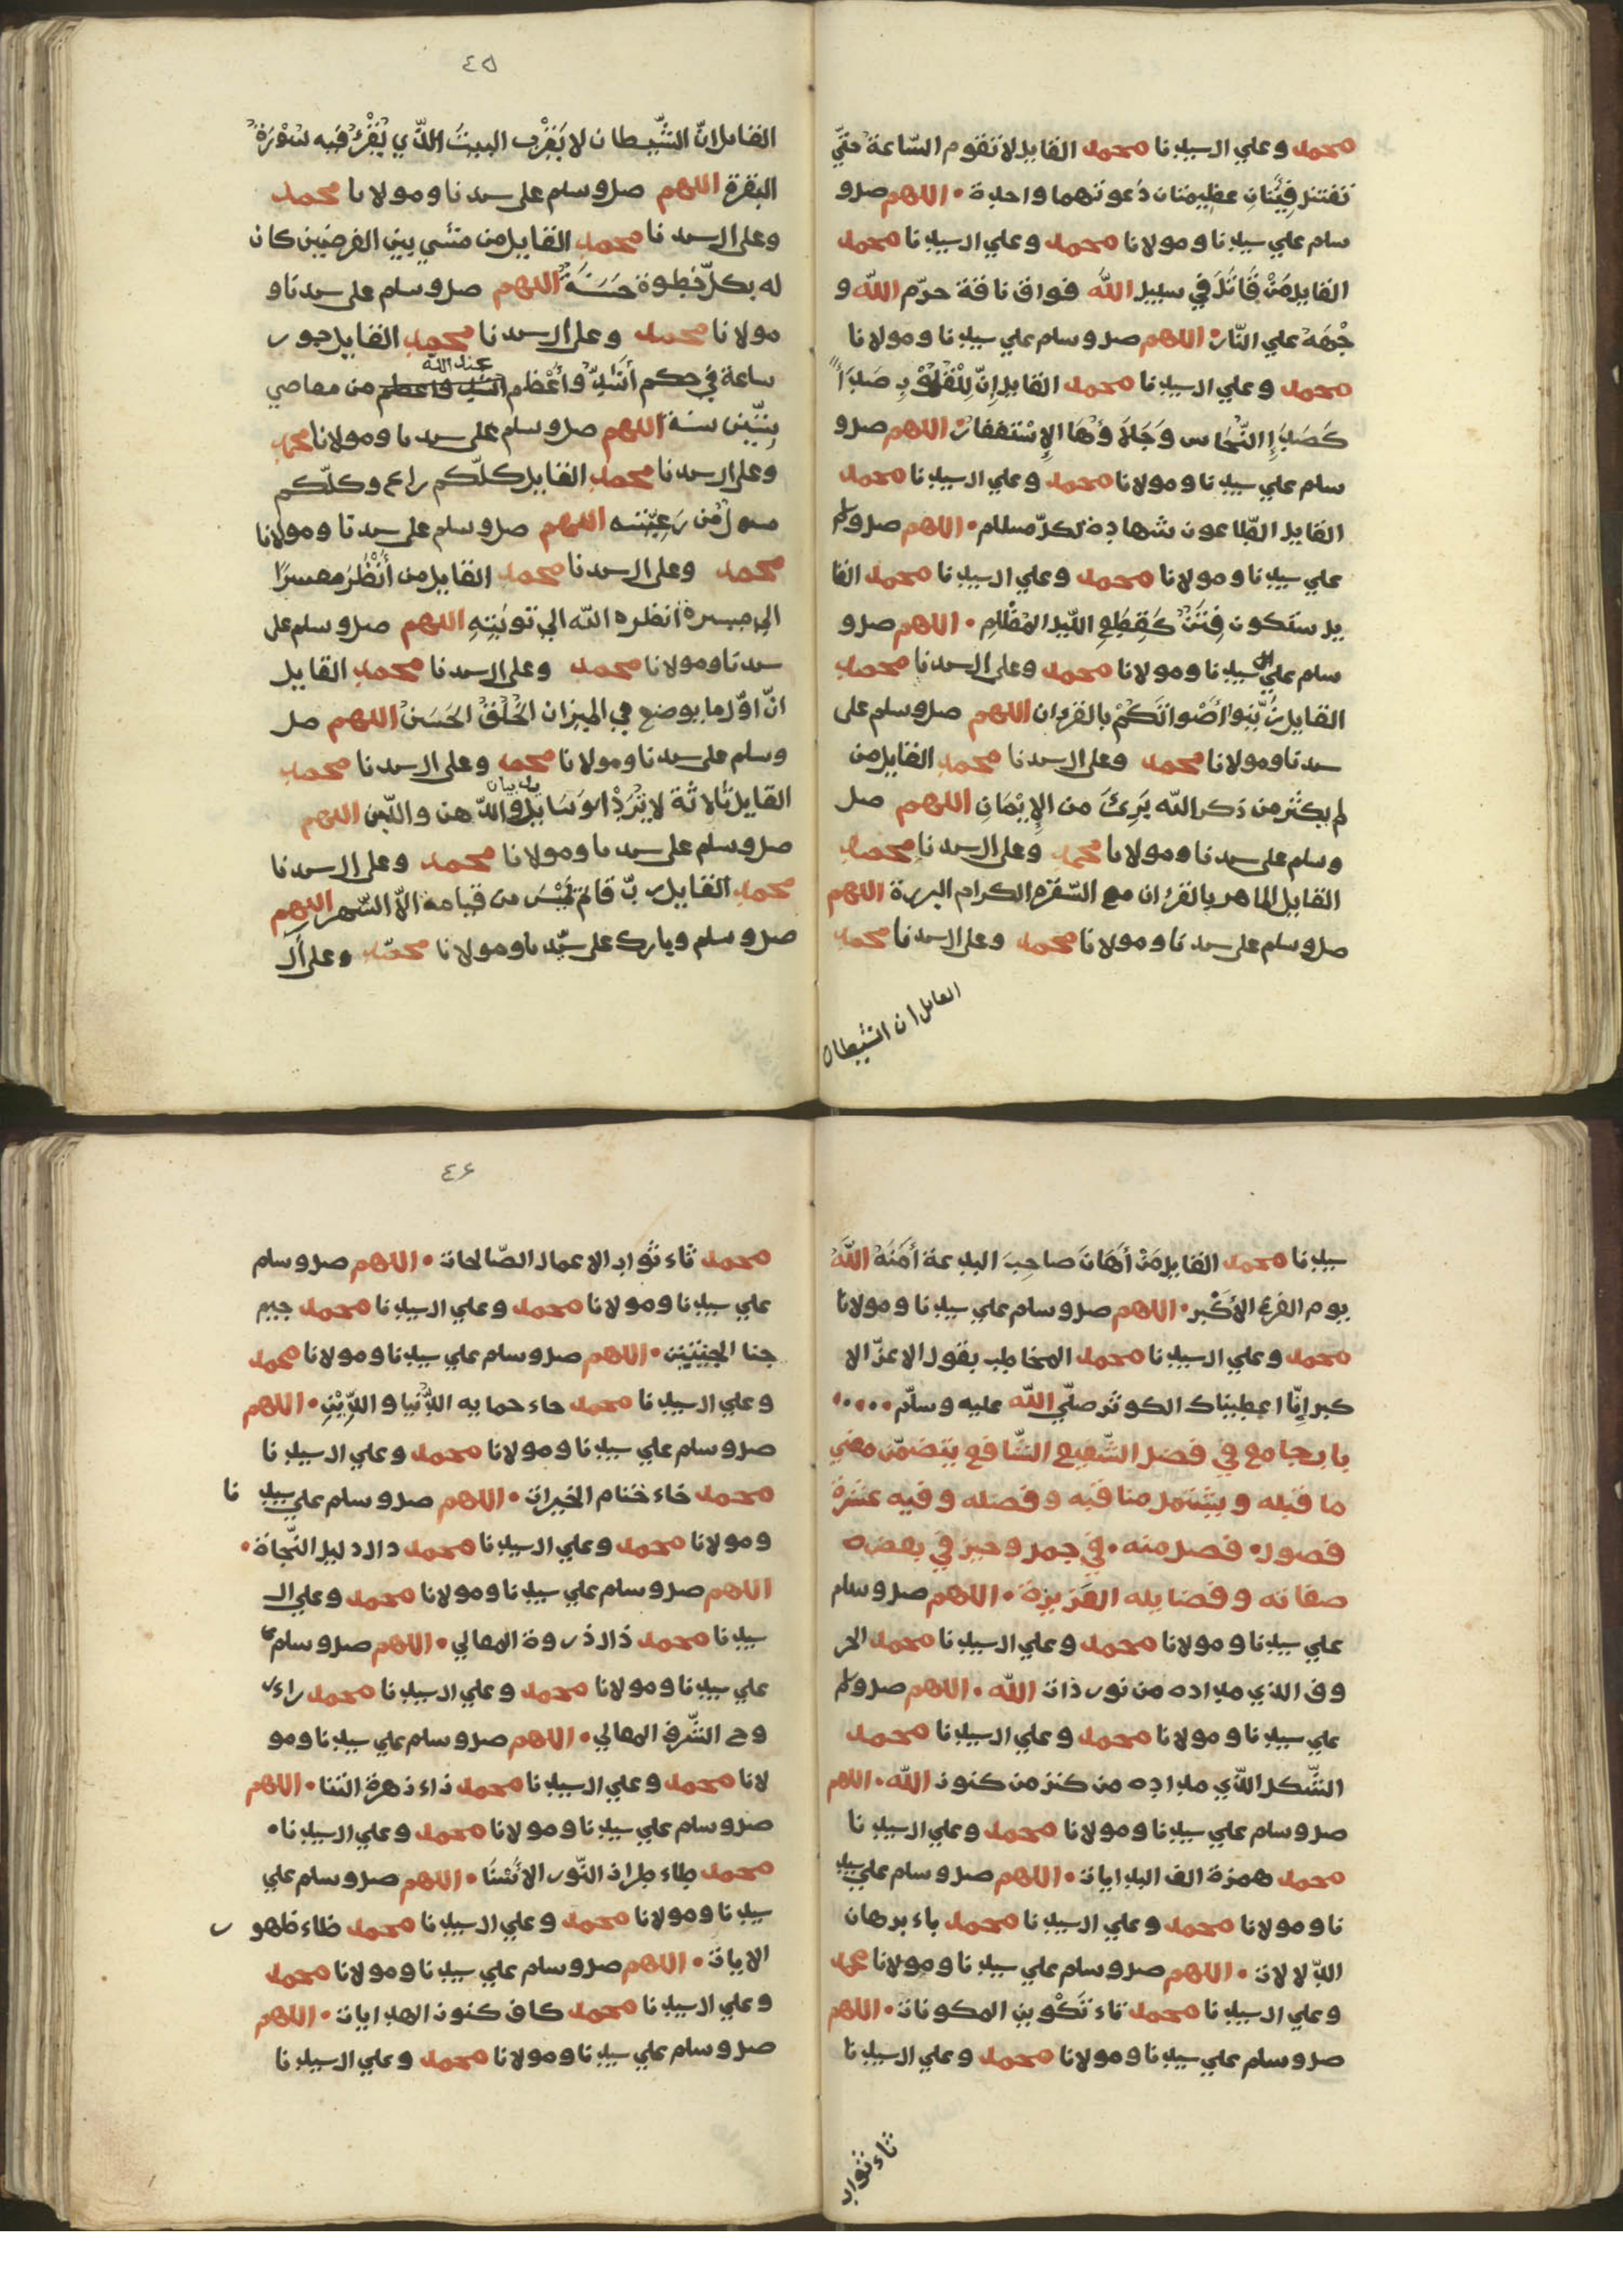 محمد وعلي ال سيدنا محمد القايل لا تقوم السّاعة حتّي
تقتتل فِئَتَانِ عظيمتان دعوتهما واحدة • اللهم صل و
سلم علي سيدنا ومولانا محمد وعلي ال سيدنا محمد
القايل مَنْ قَاتَلَ في سبيل اللّه فواق ناقة حرّم اللّه و
جْهَهُ علي النّار • اللهم صل وسلم علي سيدنا ومولانا
محمد وعلي ال سيدنا محمد القايل إنّ لِلْقُلُوْبِ صَدَأً
كَصَدَإِ النّحَاس وَجَلَاؤُهَا الإسْتغفار • اللهم صل و
سلم علي سيدنا ومولانا محمد وعلي ال سيدنا محمد
القايل الطّاعون شهادة لكلّ مسلم • اللهم صل وسلم
علي سيدنا ومولانا محمد وعلي ال سيدنا محمد القا
يل ستكون فِتَنٌ كَقِطَعِ اللّيل المُظْلِمِ • اللهم صل و
سلم علي سيدنا ومولانا محمد وعلى ال سيدنا محمد
القايل زَيِّنُوا أصْوَاتَكُمْ بالقرءان اللهم صل وسلم على
سيدنا ومولانا محمد وعلى ال سيدنا محمد القايل من
لم يكثر من ذكر اللّه بَرِئَ من الإيْمَانِ اللهم صل
وسلم على سيدنا ومولانا محمد وعلى ال سيدنا محمد
القايل الماهر بالقرءان مع السّفرة الكرام البررة اللهم
صل وسلم على سيدنا ومولانا محمد وعلى ال سيدنا محمد
القايل ان الشيطان
٤٥
القايل انّ الشّيطان لا يَقْرَب البيتَ الّذي يُقْرَءُ فيه سُوْرَةُ
البقرة اللهم صل وسلم على سيدنا ومولانا محمد
وعلى ال سيدنا محمد القايل من مشي بين الغرضين كان
له بكلّ خطوة حَسَنَةٌ اللهم صل وسلم على سيدنا و
مولانا محمد وعلى ال سيدنا محمد القايل جور
ساعة في حكم أَشَدُّ وأَعْظَم عند اللّه من معاصي
سِتّين سنة اللهم صل وسلم على سيدنا ومولانا محمد
وعلى ال سيدنا محمد القايل كلّكم راع وكلّكم
مسول عن رَعِيّته اللهم صل وسلم على سيدنا ومولانا
محمد وعلى ال سيدنا محمد القايل من أَنْظَرَ معسرًا
الي ميسرة انظره اللّه الي توبَتِهِ اللهم صل وسلم على
سيدنا ومولانا محمد وعلى ال سيدنا محمد القايل
انّ اوّل ما يوضع في الميزان الخُلُقُ الحَسَنُ اللهم صل
وسلم على سيدنا ومولانا محمد وعلى ال سيدنا محمد
القايل ثلاثة لا تُرَدّ الوَسَايد والدّهن واللّبن اللهم
صل وسلم على سيدنا ومولانا محمد وعلى ال سيدنا
محمد القايل ربّ قائم لَيْسَ من قيامه الاّ السّهر اللهم
صل وسلم وبارك على سيّدنا ومولانا محمّد وعلى أل
سيدنا محمد القايل مَنْ أَهَانَ صاحِبَ البدعة أَمَنَهُ اللّهُ
يوم الفزع الأكْبر • اللهم صل وسلم علي سيدنا ومولانا
محمد وعلي ال سيدنا محمد المخاطب بقول الاعزّ الا
كبر إنّا اعطيناك الكوثر صلّي اللّه عليه وسلّم •••••
باب جامع في فضل الشّفيع الشّافع يتضمّن معني
ما قبله ويشتمل مناقبه وفضله وفيه عشرة
فصول • فصل منه • في جمل وحيز في بعض
صفاته وفضايله العَزيزة • اللهم صل وسلم
علي سيدنا ومولانا محمد وعلي ال سيدنا محمد الحر
وف الذي مداده من نور ذات اللّه • اللهم صل وسلم
علي سيدنا ومولانا محمد وعلي ال سيدنا محمد
الشّكل الّذي مداده من كنز من كنوز اللّه • اللهم
صل وسلم علي سيدنا ومولانا محمد وعلي ال سيدنا
محمد همزة الف البدايات • اللهم صل وسلم علي سيد
نا ومولانا محمد وعلي ال سيدنا محمد باء برهان
الدّلالات • اللهم صل وسلم علي سيدنا ومولانا محمد
وعلي ال سيدنا محمد تاء تَكْوين المكونات • اللهم
صل وسلم علي سيدنا ومولانا محمد وعلي ال سيدنا
ثاء ثواب
٤٦
محمد ثاء ثواب الاعمال الصّالحات • اللهم صل وسلم
علي سيدنا ومولانا محمد وعلي ال سيدنا محمد جيم
جنا الجنتين • اللهم صل وسلم علي سيدنا ومولانا محمد
وعلي ال سيدنا محمد حاء حمايه الدّنيا والدّيْنِ • اللهم
صل وسلم علي سيدنا ومولانا محمد وعلي ال سيدنا
محمد خاء ختام الخيرات • اللهم صل وسلم علي سيد نا
ومولانا محمد وعلي ال سيدنا محمد دال دليل النّجاة •
اللهم صل وسلم علي سيدنا ومولانا محمد وعلي ال
سيدنا محمد ذال ذروة المعالي • اللهم صل وسلم
علي سيدنا ومولانا محمد وعلي ال سيدنا محمد راء ر
وح الشّرف العالي • اللهم صل وسلم علي سيدنا ومو
لانا محمد وعلي ال سيدنا محمد زاء زهرة الثنا • اللهم
صل وسلم علي سيدنا ومولانا محمد وعلي ال سيدنا •
محمد طاء طراز النّور الاسْنَا • اللهم صل وسلم علي
سيدنا ومولانا محمد وعلي ال سيدنا محمد ظاء ظهو ر
الايات • اللهم صل وسلم علي سيدنا ومولانا محمد
وعلي ال سيدنا محمد كاف كنوز الهدايات • اللهم
صل وسلم علي سيدنا ومولانا محمد وعلي ال سيدنا